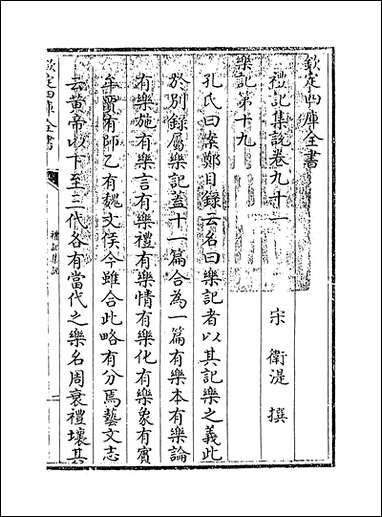 欽定四庫全書
禮記集說卷九十一
宋 衛湜 撰
樂記第十九
孔氏曰案鄭目錄云名曰樂記者以其記樂之義此
於別錄屬樂記蓋十一篇合為一篇有樂本有樂論
有樂施有樂言有樂禮有樂情有樂化有樂象有賓
牟賈有師乙有魏文侯今雖合此略有分焉藝文志
云黄帝以下至三代各有當代之樂名周衰禮壞其
欽定四庫全書
禮記集說